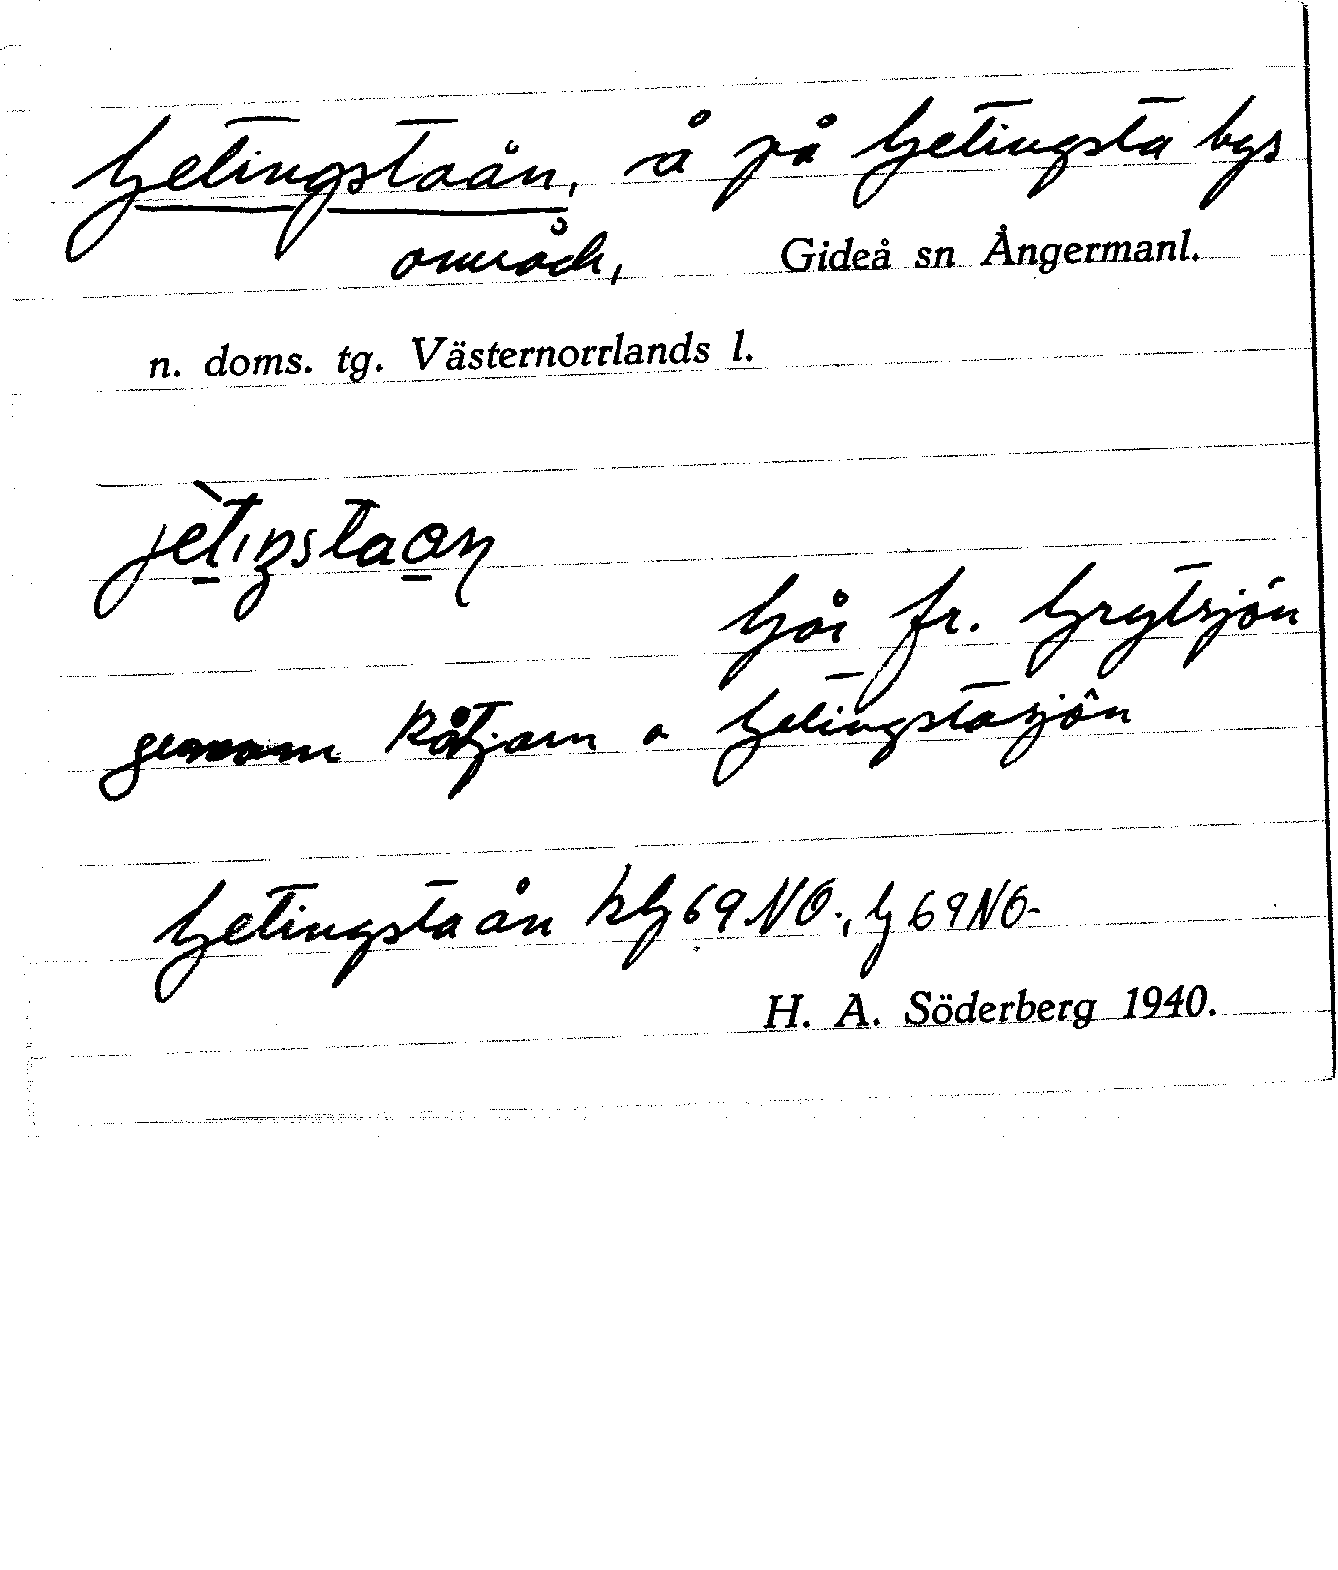 Getingstaån, å på Getingsta bys
område, Gideå sn Ångermanl.
n. doms. tg. Västernorrlands l.
jètiŋstaon
Går fr. Grytsjön
genom Råtjarn o Getingstasjön
Getingstaån kG69NO., G69NO-
H. A. Söderberg 1940.